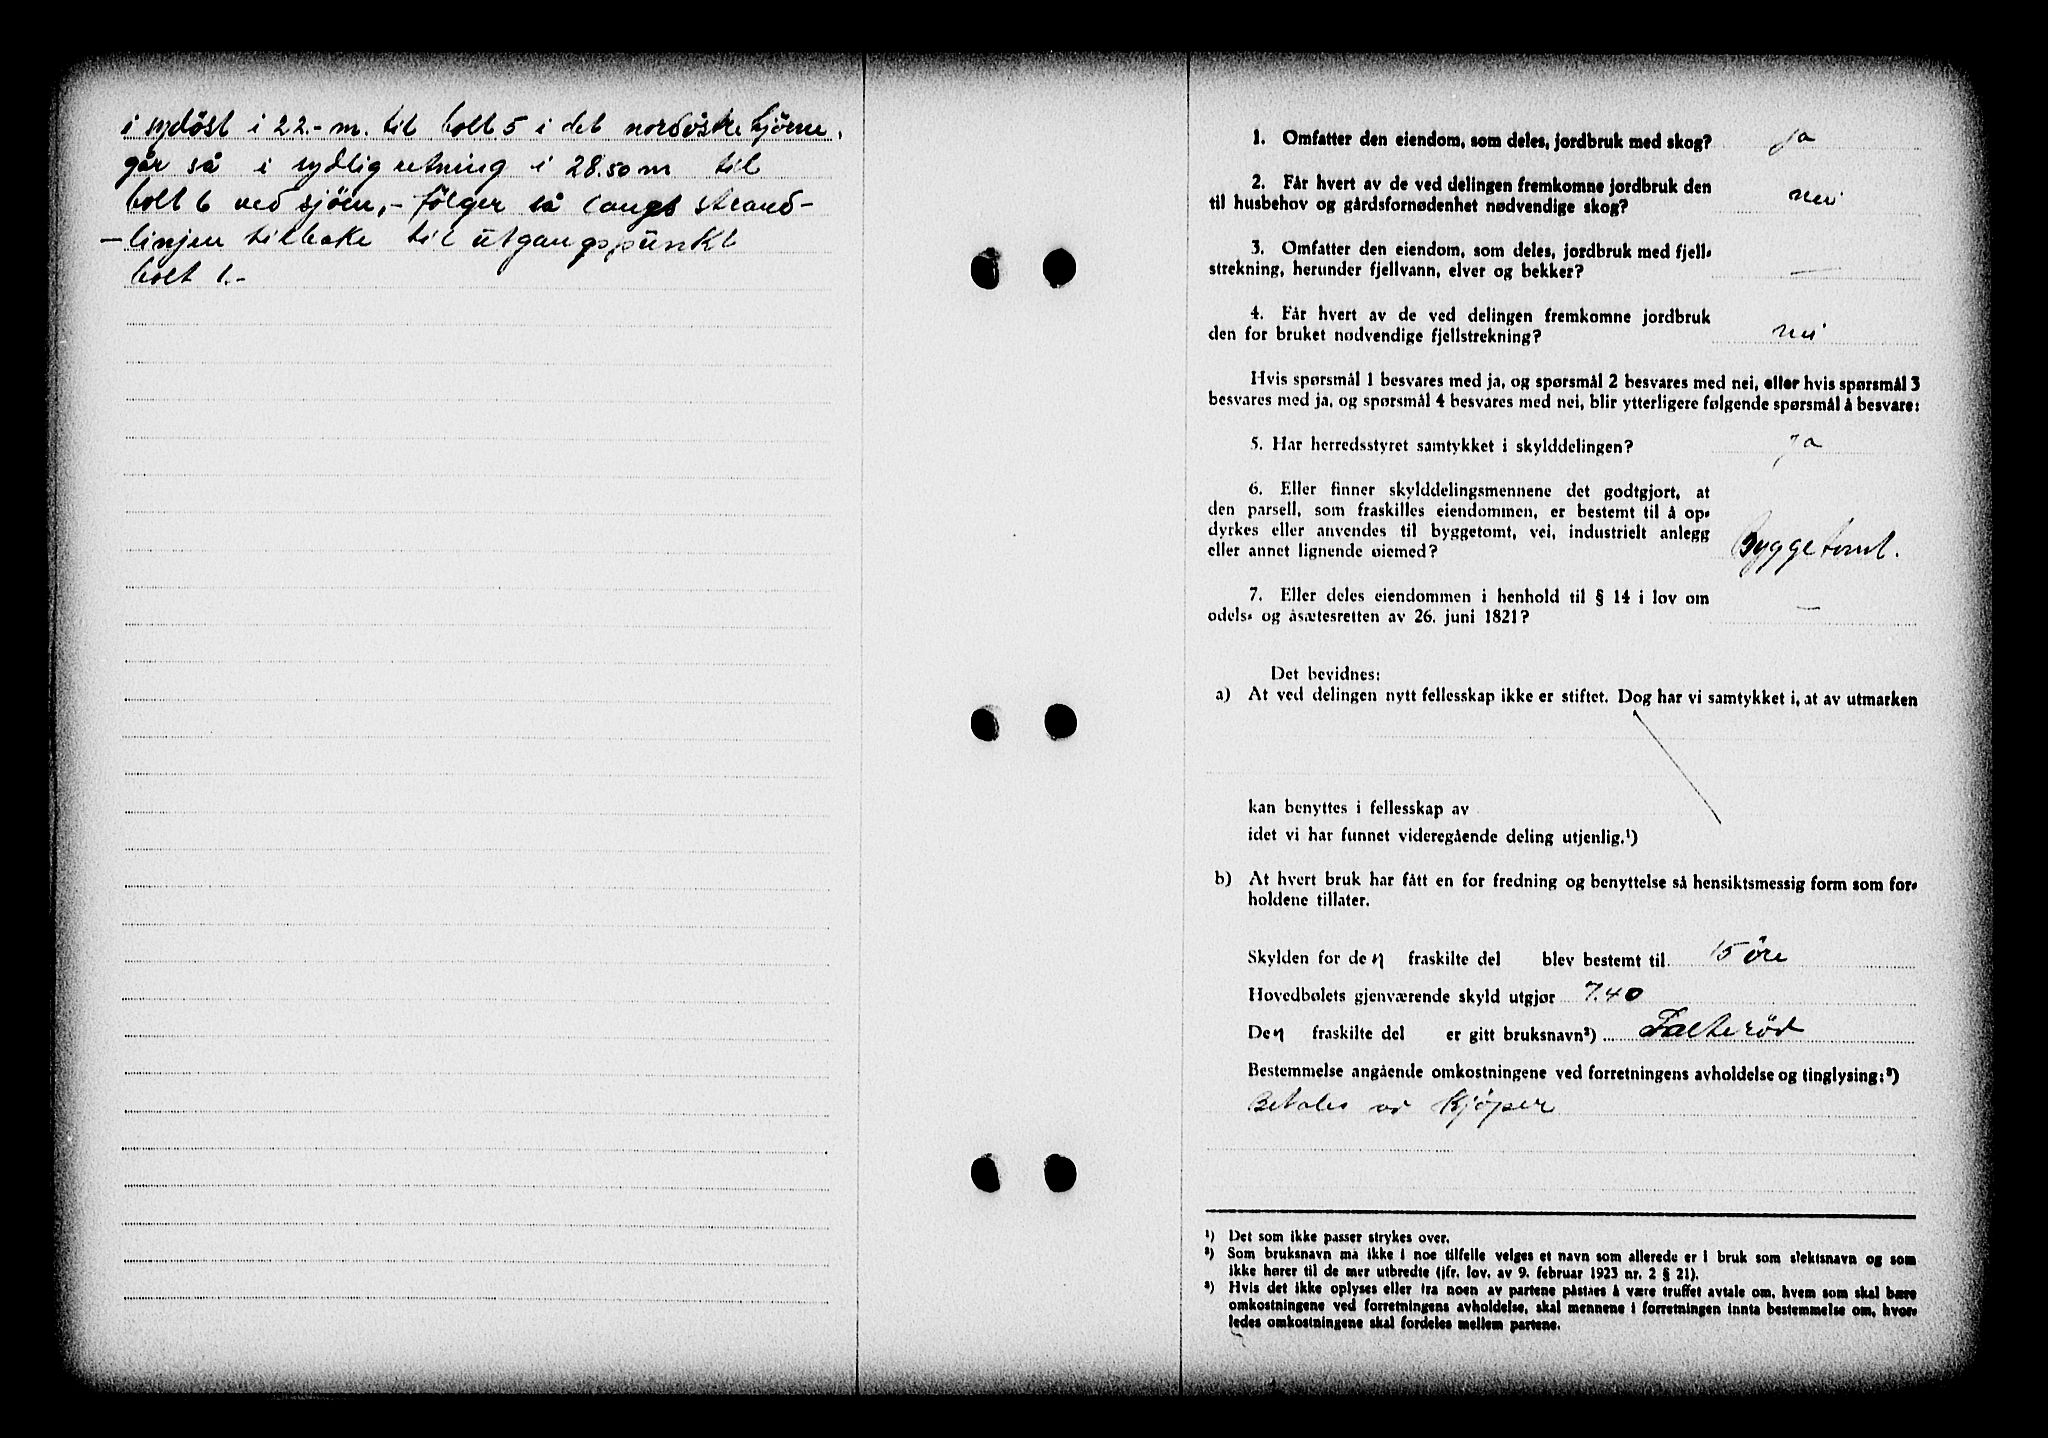 i sydöst i 22.- m. til bolt 5 i det nordöstre hjörne,
går så i sydlig retning i 28.50 m til
bolt 6 ved sjöen, - følger så langs strand-
- linjen tilbake til utgangspunkt
bolt 1.-
1. Omfatter den eiendom, som deles, jordbruk med skog? ja
2. Får hvert av de ved delingen fremkomne jordbruk den
til husbehov og gårdsfornødenhet nødvendige skog? nei
3. Omfatter den eiendom, som deles, jordbruk med fjell-
strekning, herunder fjellvann, elver og bekker? —
4. Får hvert av de ved delingen fremkomne jordbruk
den for bruket nødvendige fjellstrekning? nei
Hvis spørsmål 1 besvares med ja, og spørsmål 2 besvares med nei, eller hvis spørsmål 3
besvares med ja, og spørsmål 4 besvares med nei, blir ytterligere følgende spørsmål å besvare:
5. Har herredsstyret samtykket i skylddelingen? ja
6. Eller finner skylddelingsmennene det godtgjort, at
den parsell, som fraskilles eiendommen, er bestemt til å op-
dyrkes eller anvendes til byggetomt, vei, industrielt anlegg
eller annet lignende øiemed? Byggetomt.
7. Eller deles eiendommen i henhold til § 14 i lov om
odels- og åsætesretten av 26. juni 1821? —
Det bevidnes:
a) At ved delingen nytt fellesskap ikke er stiftet. Dog har vi samtykket i, at av utmarken
kan benyttes i fellesskap av
idet vi har funnet videregående deling utjenlig.¹)
b) At hvert bruk har fått en for fredning og benyttelse så hensiktsmessig form som for-
holdene tillater.
Skylden for den fraskilte del blev bestemt til 15 öre
Hovedbølets gjenværende skyld utgjør 7.40
Den fraskilte del er gitt bruksnavn²) Falteröd
Bestemmelse angående omkostningene ved forretningens avholdelse og tinglysing:³)
Betales av Kjöper
¹) Det som ikke passer strykes over.
²) Som bruksnavn må ikke i noe tilfelle velges et navn som allerede er i bruk som slektsnavn og som
ikke hører til de mer utbredte (jfr. lov. av 9. februar 1923 nr. 2 § 21).
³) Hvis det ikke oplyses eller fra noen av partene påståes å være truffet avtale om, hvem som skal bære
omkostningene ved forretningens avholdelse, skal mennene i forretningen innta bestemmelse om, hvor-
ledes omkostningene skal fordeles mellem partene.